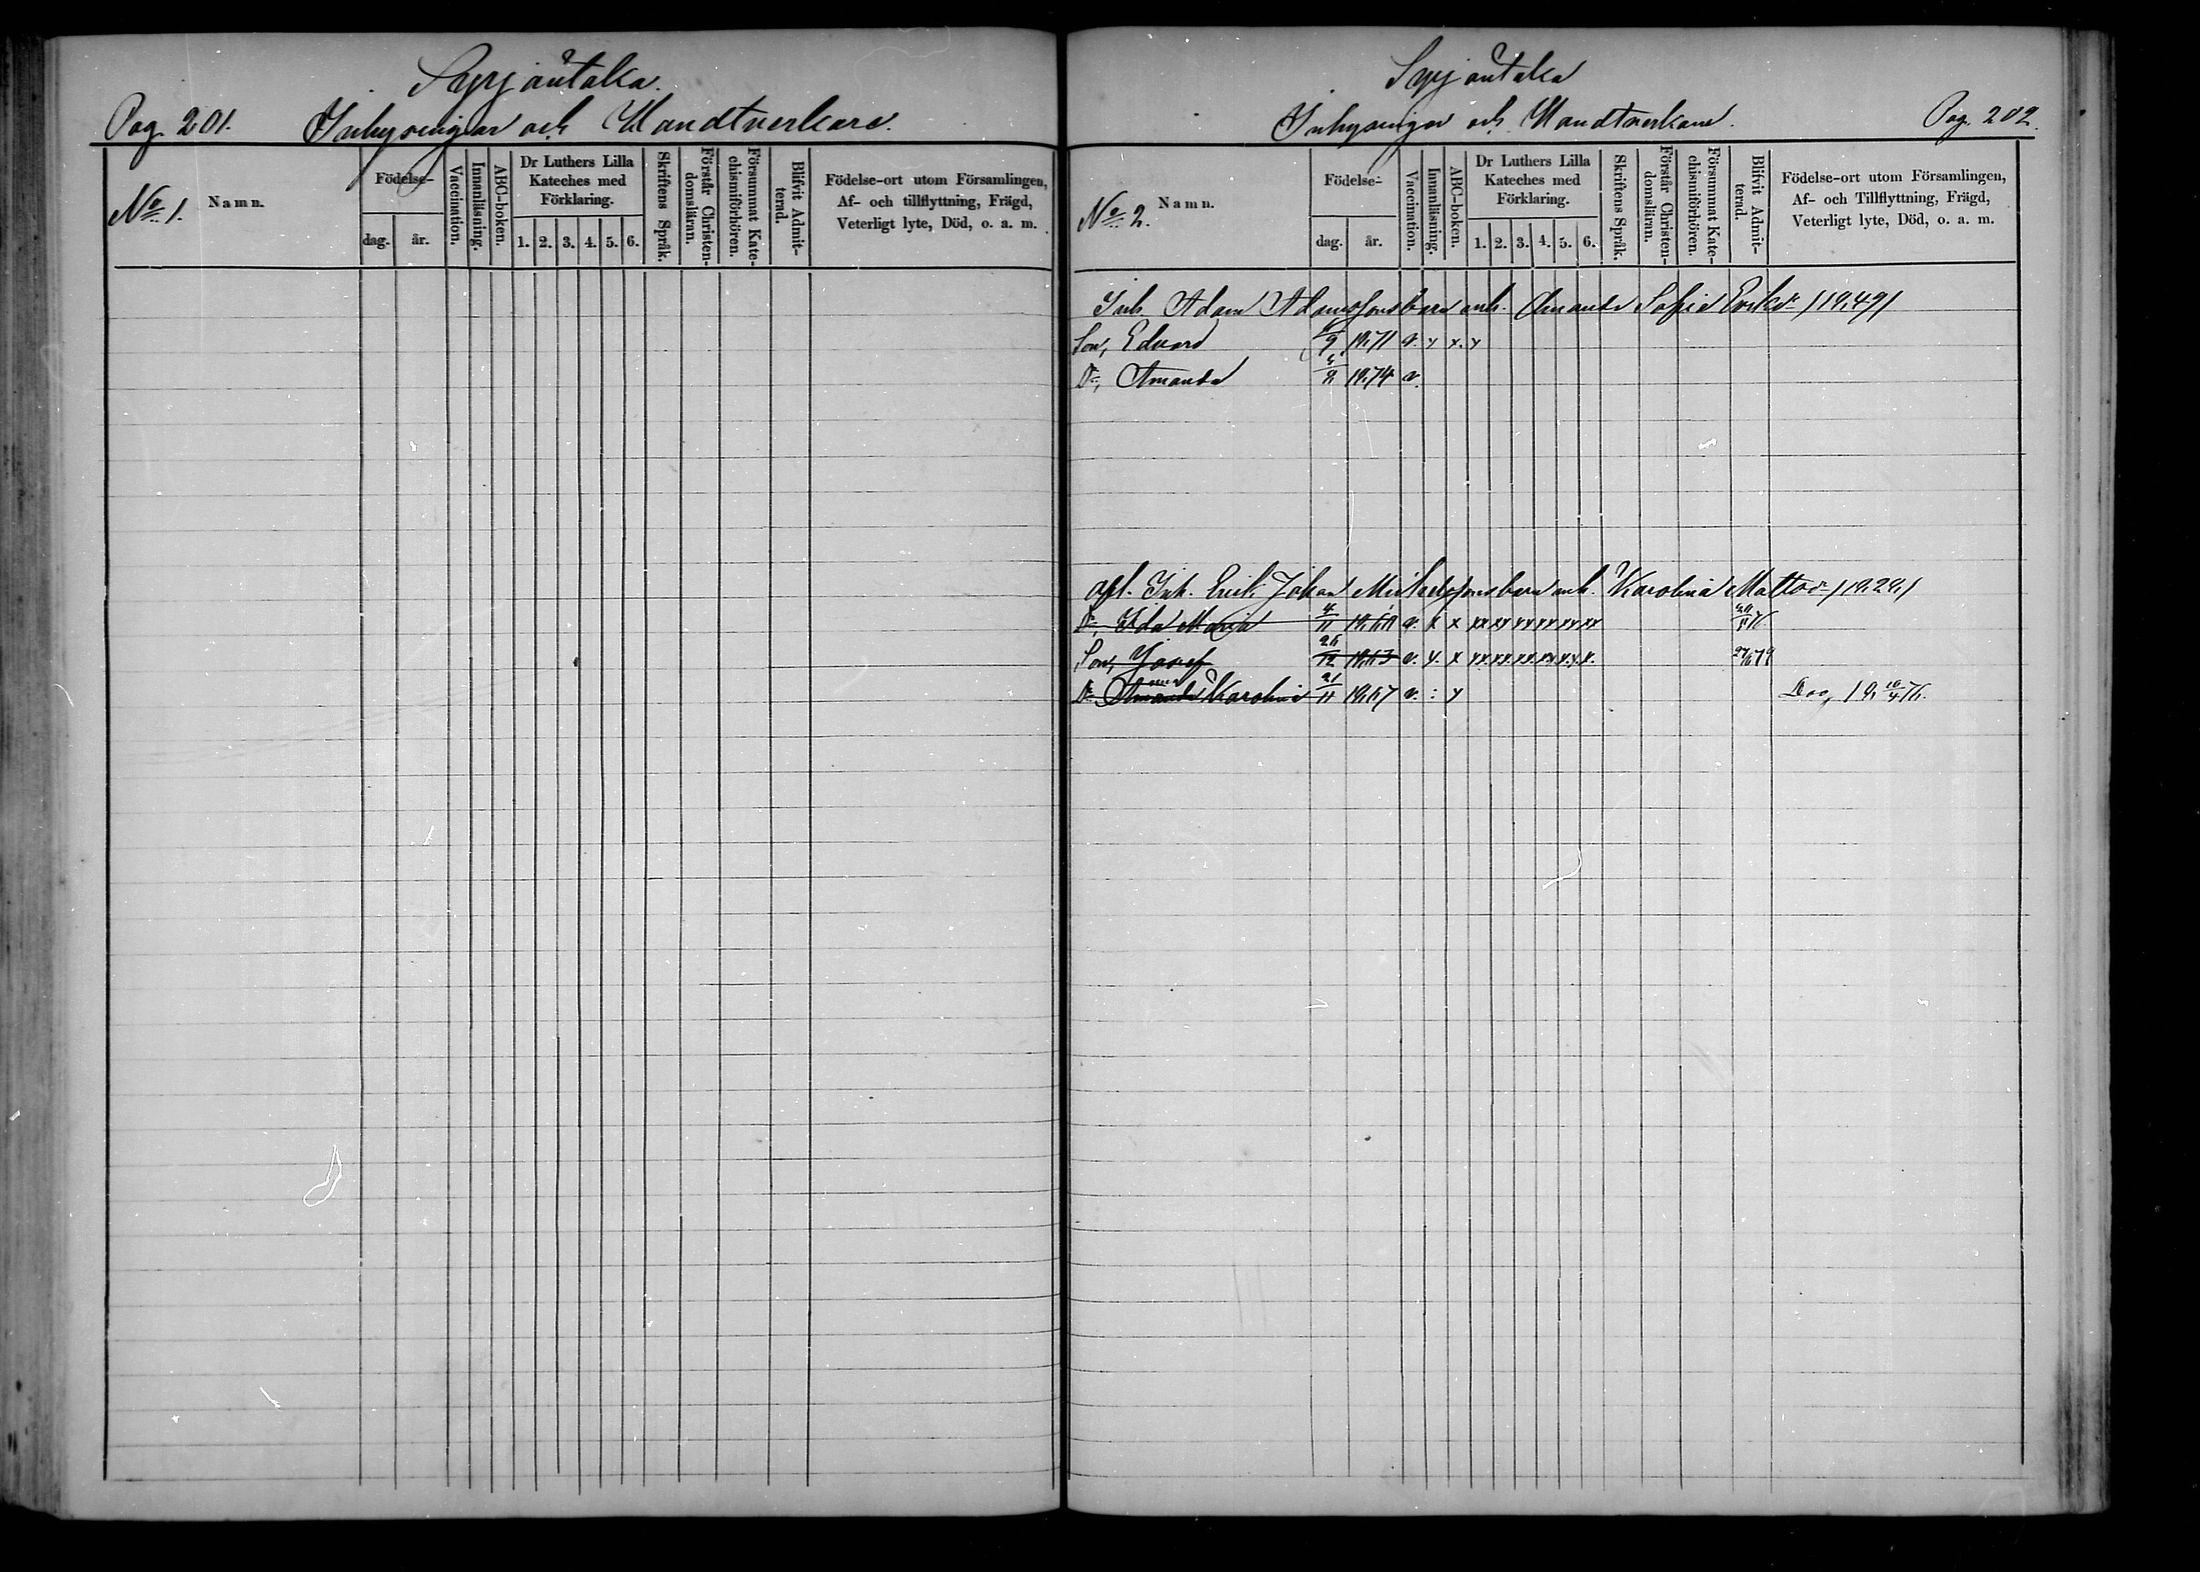 Syrjäntaka.
Pag. 201. Inhysingar och Handtverkare.
No 1. Namn.
Födelse-
dag. år.
Vaccination.
Innanläsning.
ABC-boken.
Dr Luthers Lilla Kateches med Förklaring.
1. 2. 3. 4. 5. 6.
Skriftens Språk.
Förstår Christen-domsläran.
Försummat Kate-chismiförhören.
Blifvit Admit-terad.
Födelse-ort utom Församlingen,
Af- och tillflyttning, Frägd,
Veterligt lyte, Död, o. a. m.
Syrjäntaka
Inhysingar och Handtverkare. Pag. 202.
No 2. Namn.
Födelse-
dag. år.
Vaccination.
Innanläsning.
ABC-boken.
Dr Luthers Lilla
Kateches med
Förklaring.
1. 2. 3. 4. 5. 6.
Skriftens Språk.
Förstår Christen-domsläran.
Försummat Kate-chismiförhören.
Blifvit Admit-terad.
Födelse-ort utom Församlingen,
Af- och Tillflyttning, Frägd,
Veterligt lyte, Död, o. a. m.
Inh. Adam Adamssons barn enk. Amanda Sofia Eriksdr /18,49/
Son, Edvard 18,71 v. x x. x
Dr, Amanda 18,74 v.
Afl. Inh. Erik Johan Mickelssons barn enk. Karolina Mattsdr /18,29,/
Dr, Ida Maria 4/11 18,60 v. x x xx xx xx xx xx xx
Son, Josef 26/12 18,63 v. x. x xx xx. xx. xx x.x. x. 27/6 79
Dr Amanda Karolina 21/11 18,67 v. : x Död 18 10/4 76.